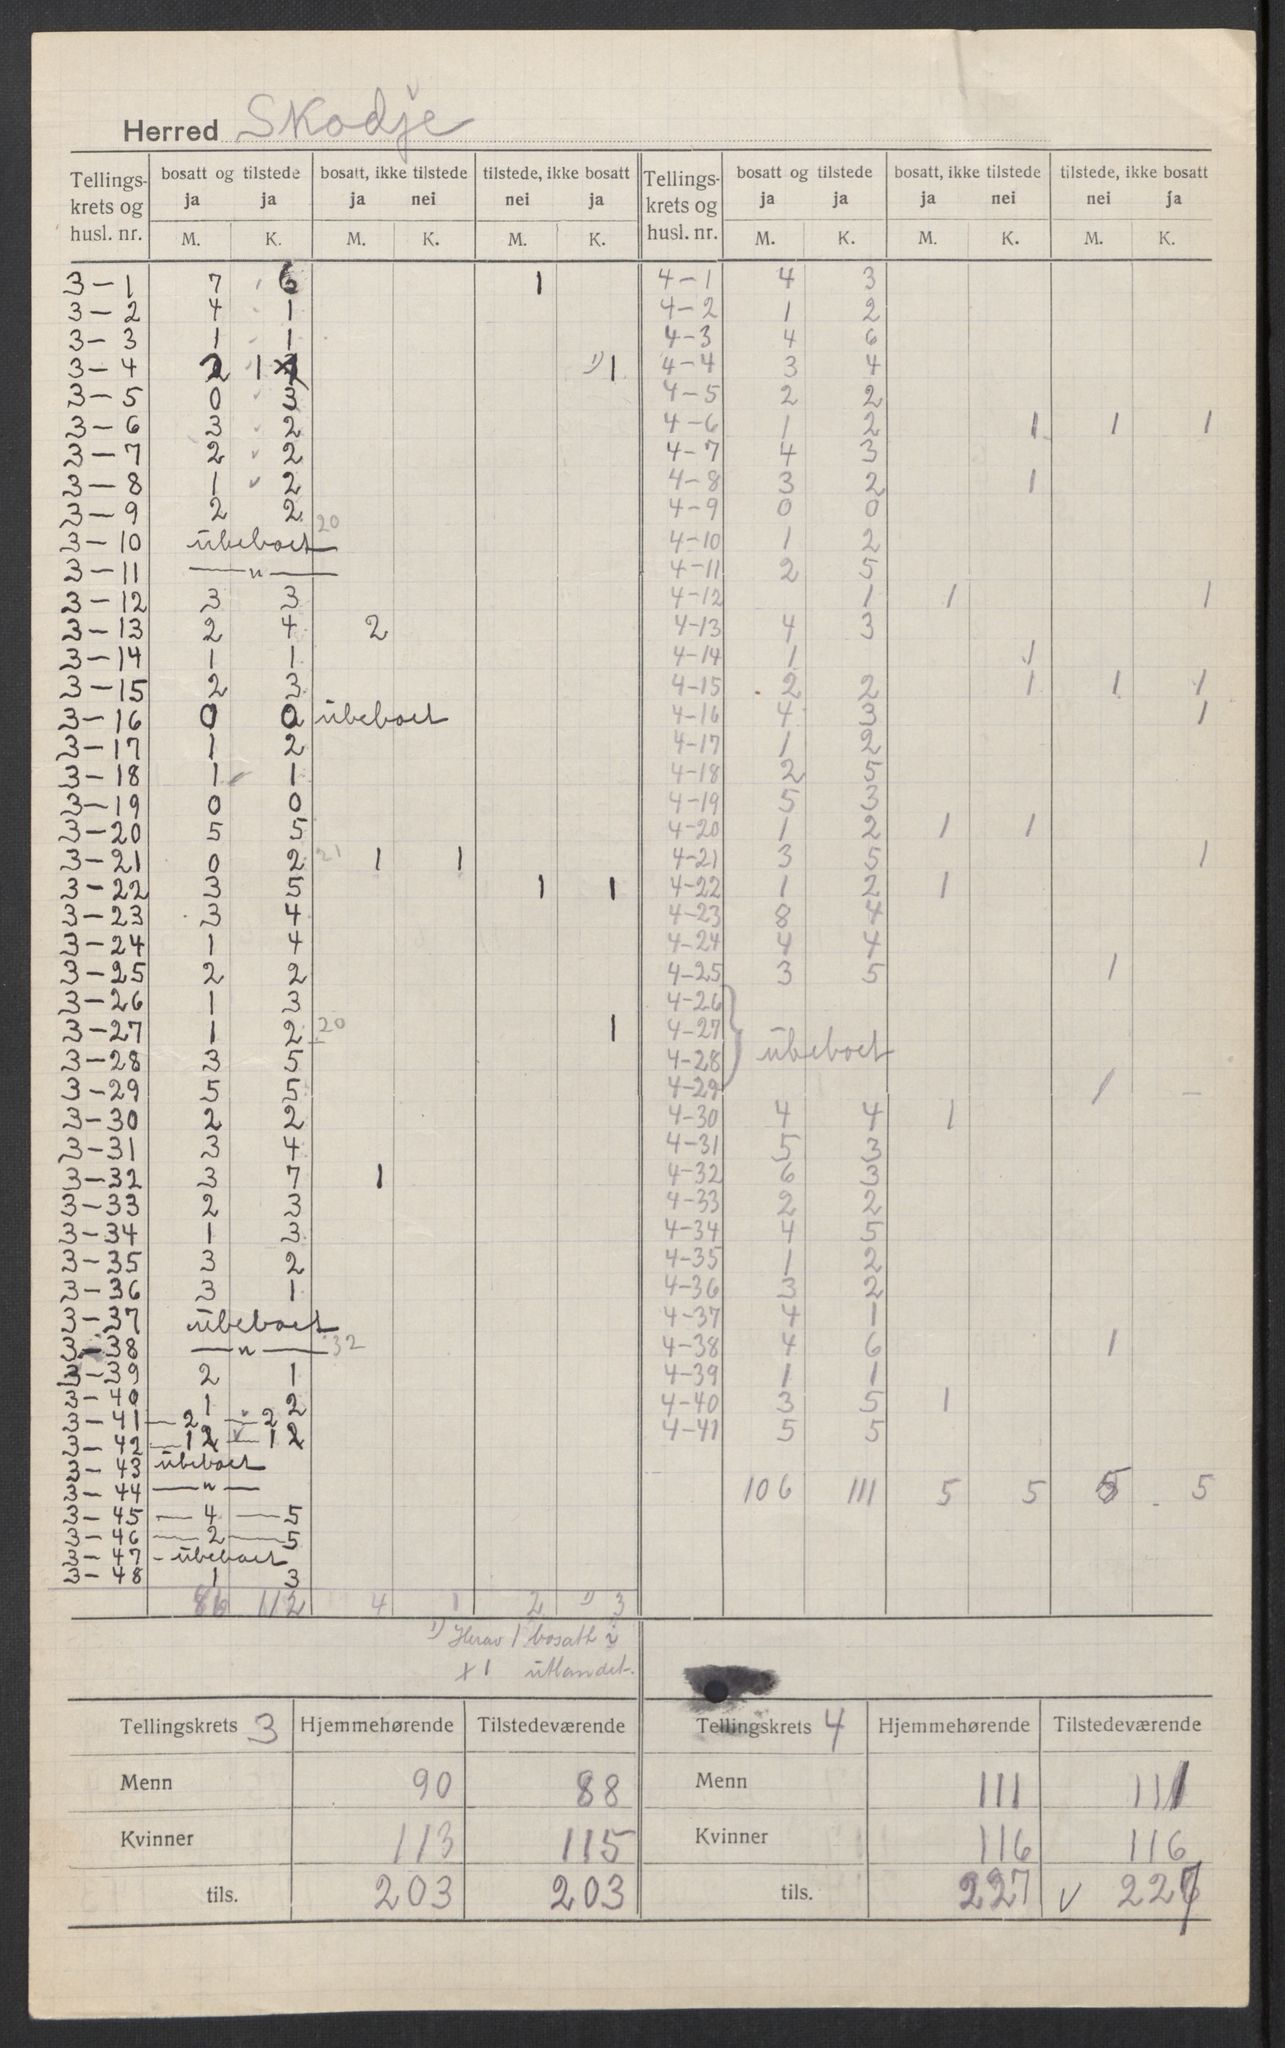 Herred Skodje
Tellings- krets og husl. nr. | bosatt og tilstede ja ja | bosatt, ikke tilstede ja nei | tilstede, ikke bosatt nei ja | Tellings- krets og husl. nr. | bosatt og tilstede ja ja | bosatt, ikke tilstede ja nei | tilstede, ikke bosatt nei ja
M. K. M. K. M. K. M. K. M. K. M. K.
3-1 7 6 1 4-1 4 3
3-2 4 1 4-2 1 2
3-3 1 1 4-3 4 6
3-4 2 1 ¹⁾1 4-4 3 4
3-5 0 3 4-5 2 2
3-6 3 2 4-6 1 2 1 1 1
3-7 2 2 4-7 4 3
3-8 1 2 4-8 3 2 1
3-9 2 2 4-9 0 0
3-10 ubeboet 20 4-10 1 2
3-11 —"— 4-11 2 5
3-12 3 3 4-12 1 1 1
3-13 2 4 2 4-13 4 3
3-14 1 1 4-14 1 1
3-15 2 3 4-15 2 2 1 1 1
3-16 0 0 ubeboet 4-16 4 3 1
3-17 1 2 4-17 1 2
3-18 1 1 4-18 2 5
3-19 0 0 4-19 5 3
3-20 5 5 4-20 1 2 1 1
3-21 0 2 21 1 1 4-21 3 5 1
3-22 3 5 1 1 4-22 1 2 1
3-23 3 4 4-23 8 4
3-24 1 4 4-24 4 4
3-25 2 2 4-25 3 5 1
3-26 1 3 4-26
3-27 1 2 20 1 4-27
3-28 3 5 4-28 ubeboet
3-29 5 5 4-29 1 —
3-30 2 2 4-30 4 4 1
3-31 3 4 4-31 5 3
3-32 3 7 1 4-32 6 3
3-33 2 3 4-33 2 2
3-34 1 3 4-34 4 5
3-35 3 2 4-35 1 2
3-36 3 1 4-36 3 2
3-37 ubeboet 4-37 4 1
3-38 —"— 32 4-38 4 6 1
3-39 2 1 4-39 1 1
3-40 1 2 4-40 3 5 1
3-41 — 2 — 2 4-41 5 5
3-42 — 1 2 — 1 2
3-43 ubeboet
3-44 —"— 106 111 5 5 5 5
3-45 — 4 — 5
3-46 — 2 — 5
3-47 - ubeboet
3-48 1 3
86 112 4 1 2 ¹⁾ 3
¹⁾ Herav 1 bosatt i
+1 utlandet.
Tellingskrets 3 Hjemmehørende Tilstedeværende Tellingskrets 4 Hjemmehørende Tilstedeværende
Menn 90 88 Menn 111 111
Kvinner 113 115 Kvinner 116 116
tils. 203 203 tils. 227 v 227